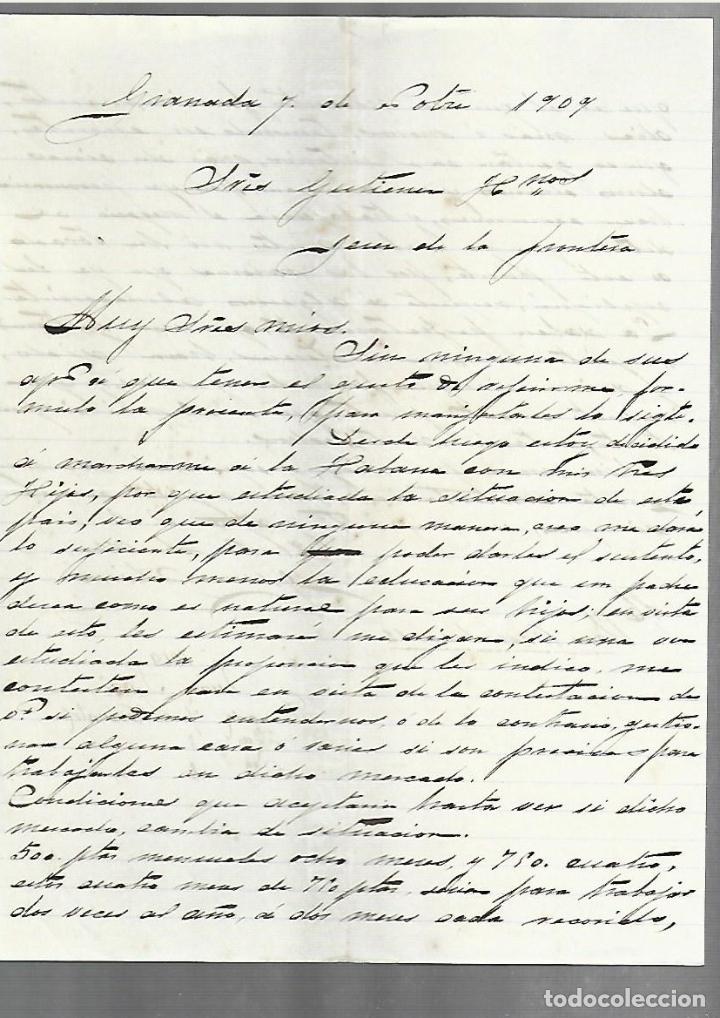 Granada 7. de Obre 1909
Sres Gutierrez Hnos
Jerez de la frontera
Muy Sres mios.
Sin ninguna de sus
á que tener el gusto de referirme, for-
mulo la presente, para manifestarles lo sigte.
Desde luego estoy decidido
á marcharme á la Habana con mis tres
Hijos, por que estudiada la situacion de este
pais, veo que de ninguna manera, creo me dará
lo suficiente, para poder darles el sustento,
y mucho menos la educacion que un padre
desea como es natural para sus hijos; en vista
de esto, les estimaré me digan, si una vez
estudiada la proposicion que les indico, me
contesten para en vista de la contestacion de
Vs si podemos entendernos, ó de lo contrario, gestio-
nar alguna casa ó varias si son precisas para
trabajarlas en dicho mercado.
Condiciones que aceptaria hasta ver si dicho
mercado, cambia de situacion.
500. ptas mensuales ocho meses, y 750. cuatro,
estos cuatro meses de 750 ptas, serian para trabajar
dos veces al año, á dos meses cada recorrido,
todocoleccion